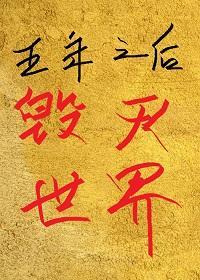 五年之后
毁灭
世界